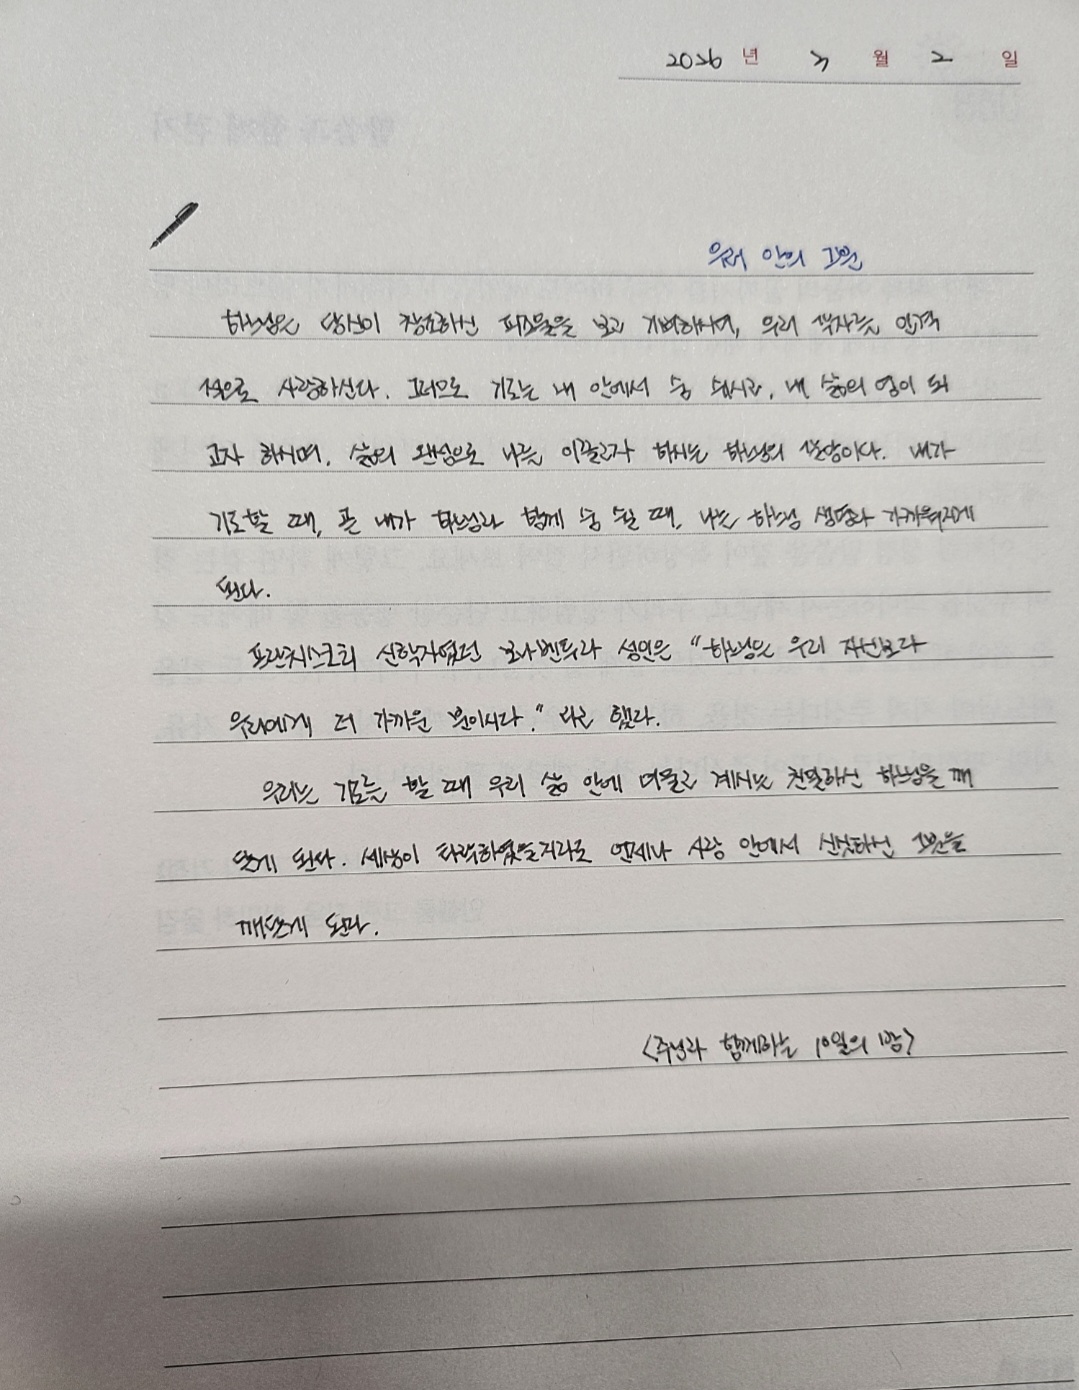 2026 년 3 월 2 일
우리 안의 그분
하느님은 당신이 창조하신 피조물을 보고 기뻐하시며, 우리 각자를 인격
적으로 사랑하신다. 그러므로 기도는 내 안에서 숨 쉬시고, 내 삶의 영이 되
고자 하시며, 삶의 으로 나를 이끌고자 하시는 하느님의 갈망이다. 내가
기도할 때, 곧 내가 하느님과 함께 숨 쉴 때, 나는 하느님 생명과 가까워지게
된다.
프란치스코회 신학자였던 보나벤투라 성인은 "하느님은 우리 자신보다
우리에게 더 가까운 분이시다." 라고 했다.
우리는 기도를 할 때 우리 삶 안에 머물고 계시는 친밀하신 하느님을 깨
닫게 된다. 세상이 타락하였을지라도 언제나 사랑 안에서 신실하신 그분을
깨닫게 된다.
<주님과 함께하는 10일의 밤>